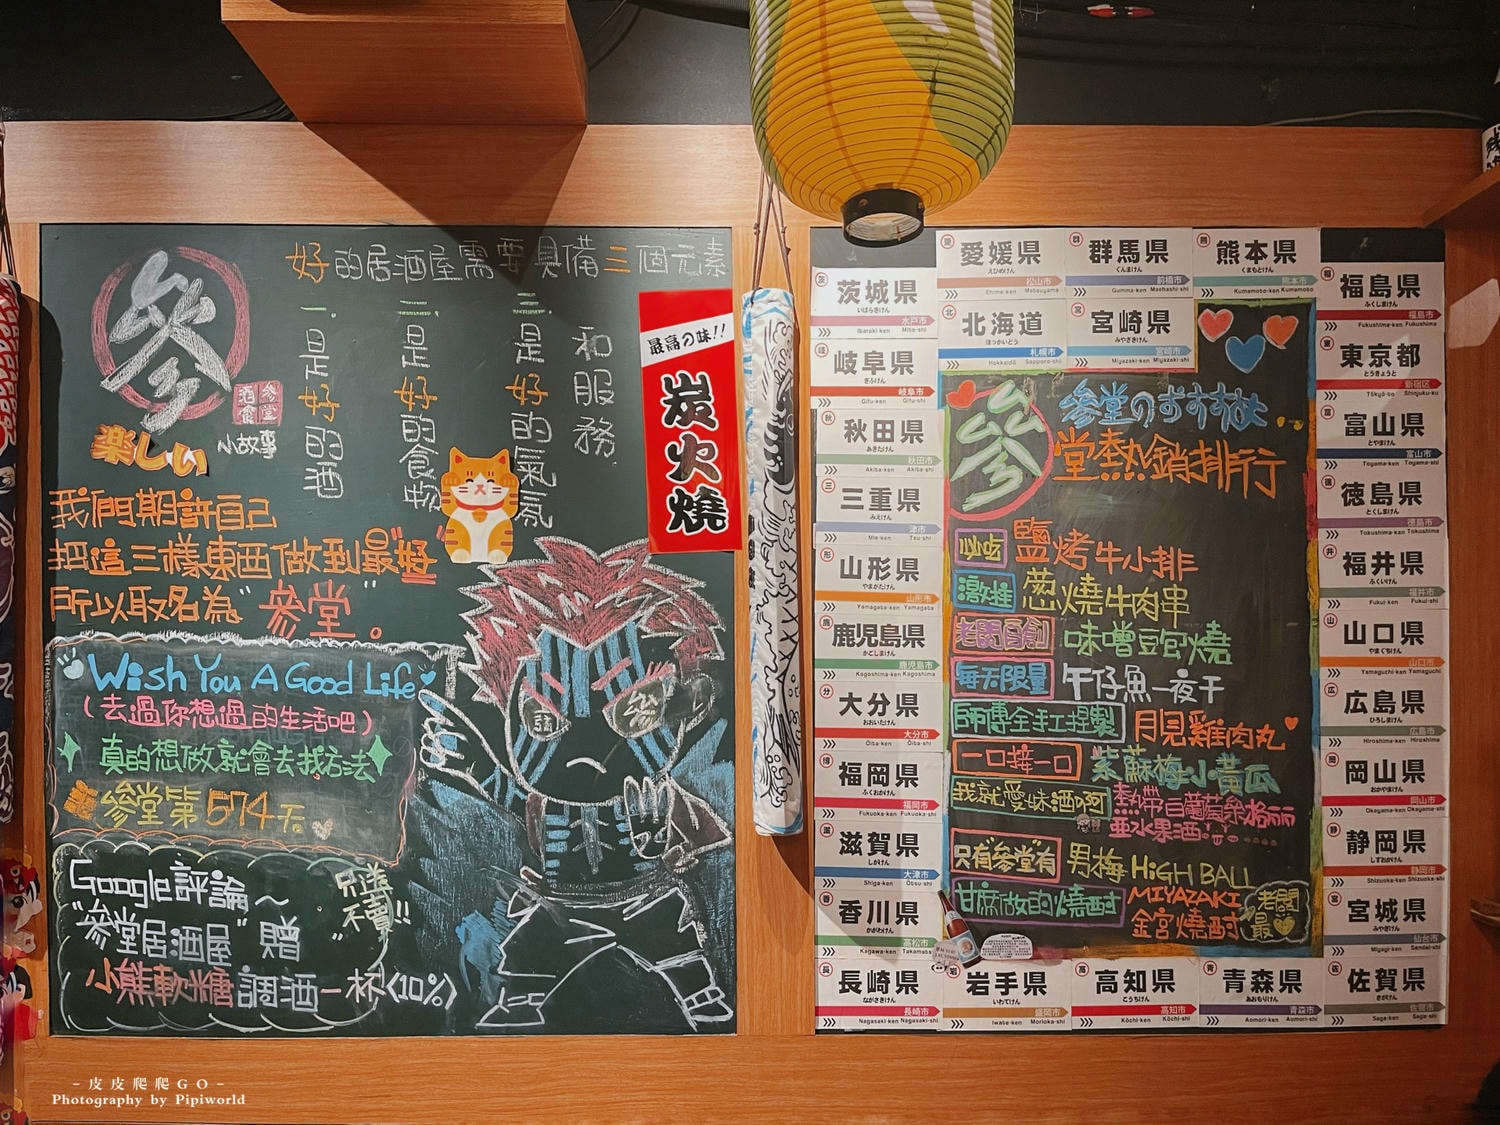 參
參堂
酒食
楽しい
小故事
好的居酒屋需要具備三個元素
一.是好的酒
二.是好的食物
三.是好的氣氛
和服務.
我們期許自己
把這三樣東西做到最"好"
所以取名為"參堂"。
最高の味!!
炭火燒
Wish You A Good Life
(去過你想過的生活吧)
真的想做就會去找方法
參堂第574天
Google評論~
"參堂居酒屋"贈
小熊軟糖調酒一杯(10%)
"只送不賣!!"
參
參堂のおすすめ
堂熱銷排行
必吃 鹽烤牛小排
激推 蔥燒牛肉串
老闆自創 味噌豆腐燒
每天限量 午仔魚一夜干
師傅全手工捏製 月見雞肉丸
一口接一口 紫蘇梅小黃瓜
我就愛妹酒啊
只有參堂有 男梅 HiGH BALL
甘蔗做的燒酎 MIYAZAKI
金宮燒酎
老闆最
茨城県
いばらきけん
水戸市
Ibaraki-ken Mito-shi
岐阜県
ぎふけん
岐阜市
Gifu-ken Gifu-shi
秋田県
あきたけん
秋田市
Akita-ken Akita-shi
三重県
みえけん
津市
Mie-ken Tsu-shi
山形県
やまがたけん
山形市
Yamagata-ken Yamagata-shi
鹿児島県
かごしまけん
鹿児島市
Kagoshima-ken Kagoshima-shi
大分県
おおいたけん
大分市
Ōita-ken Ōita-shi
福岡県
ふくおかけん
福岡市
Fukuoka-ken Fukuoka-shi
滋賀県
しがけん
大津市
Shiga-ken Ōtsu-shi
香川県
かがわけん
高松市
Kagawa-ken Takamats
長崎県
ながさきけん
長崎市
Nagasaki-ken Nagasaki-shi
愛媛県
えひめけん
松山市
Ehime-ken Matsuyama
群馬県
ぐんまけん
前橋市
Gumma-ken Maebashi-shi
熊本県
くまもとけん
熊本市
Kumamoto-ken Kumamoto
北海道
ほっかいどう
札幌市
Hokkaidō Sapporo-shi
宮崎県
みやざきけん
宮崎市
Miyazaki-ken Miyazaki-shi
福島県
ふくしまけん
福島市
Fukushima-ken Fukushima
東京都
とうきょうと
新宿区
Tōkyō-to Shinjuku-ku
富山県
とやまけん
富山市
Toyama-ken Toyama-shi
徳島県
とくしまけん
徳島市
Tokushima-ken Tokushima
福井県
ふくいけん
福井市
Fukui-ken Fukui-shi
山口県
やまぐちけん
山口市
Yamaguchi-ken Yamaguchi
広島県
ひろしまけん
広島市
Hiroshima-ken Hiroshima
岡山県
おかやまけん
岡山市
Okayama-ken Okayama-shi
静岡県
しずおかけん
静岡市
Shizuoka-ken Shizuoka-shi
宮城県
みやぎけん
仙台市
Miyagi-ken Sendai-shi
岩手県
いわてけん
盛岡市
Iwate-ken Morioka-shi
高知県
こうちけん
高知市
Kōchi-ken Kōchi-shi
青森県
あおもりけん
青森市
Aomori-ken Aomori-shi
佐賀県
さがけん
佐賀市
Saga-ken Saga-shi
-皮皮爬爬GO-
Photography by Pipiworld